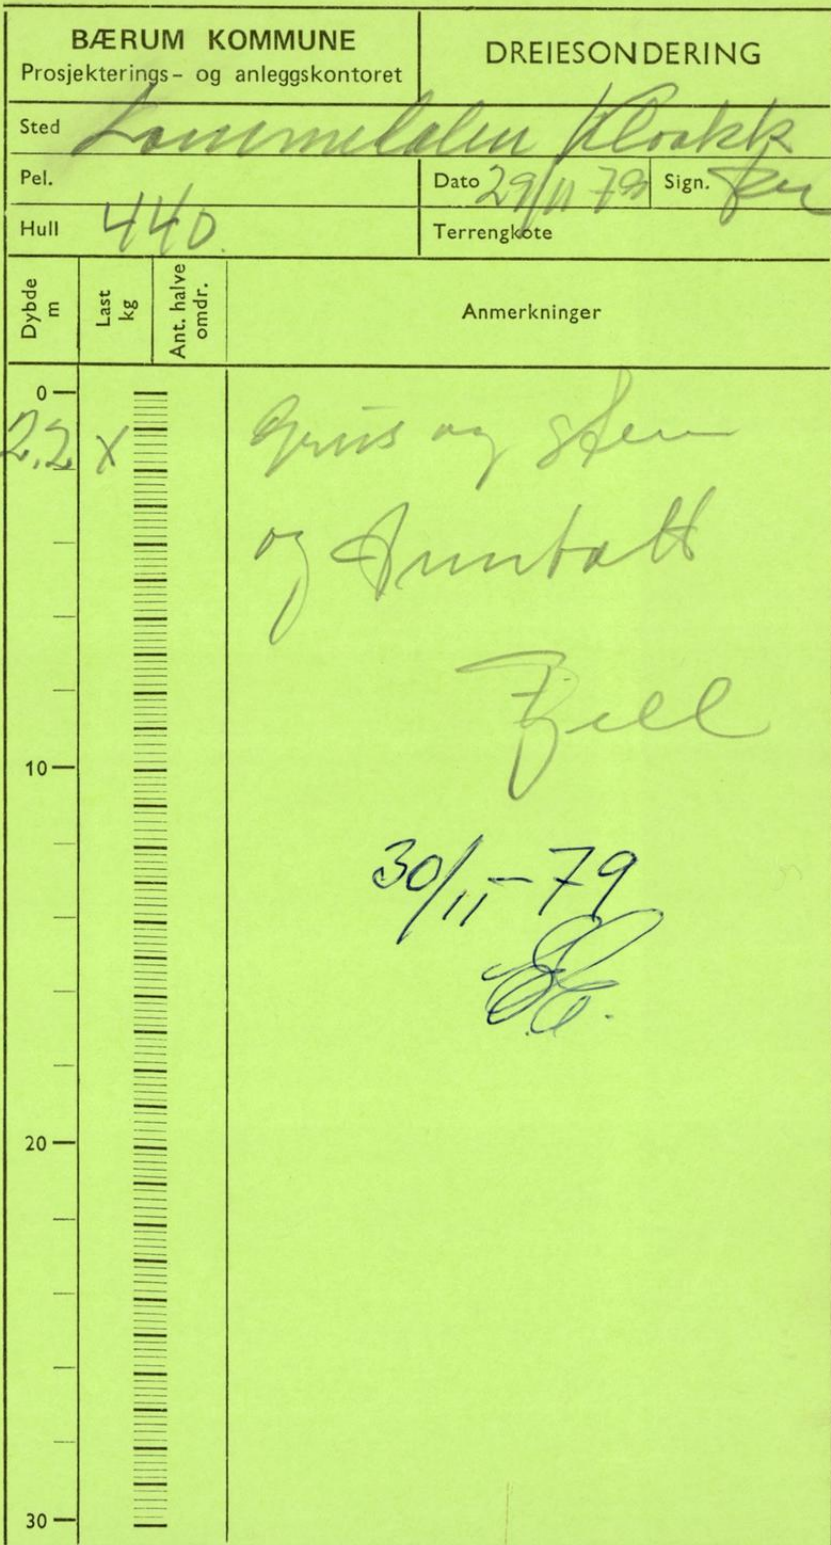 BÆRUM KOMMUNE
Prosjekterings- og anleggskontoret
DREIESONDERING
Sted Lommedalen Kloakk
Pel.
Dato 29/11 79 Sign.
Hull 440
Terrengkote
Dybde m
Last kg
Ant. halve omdr.
Anmerkninger
0
2,2 X
Grus og sten
og
Fjell
10
30/11-79
20
30